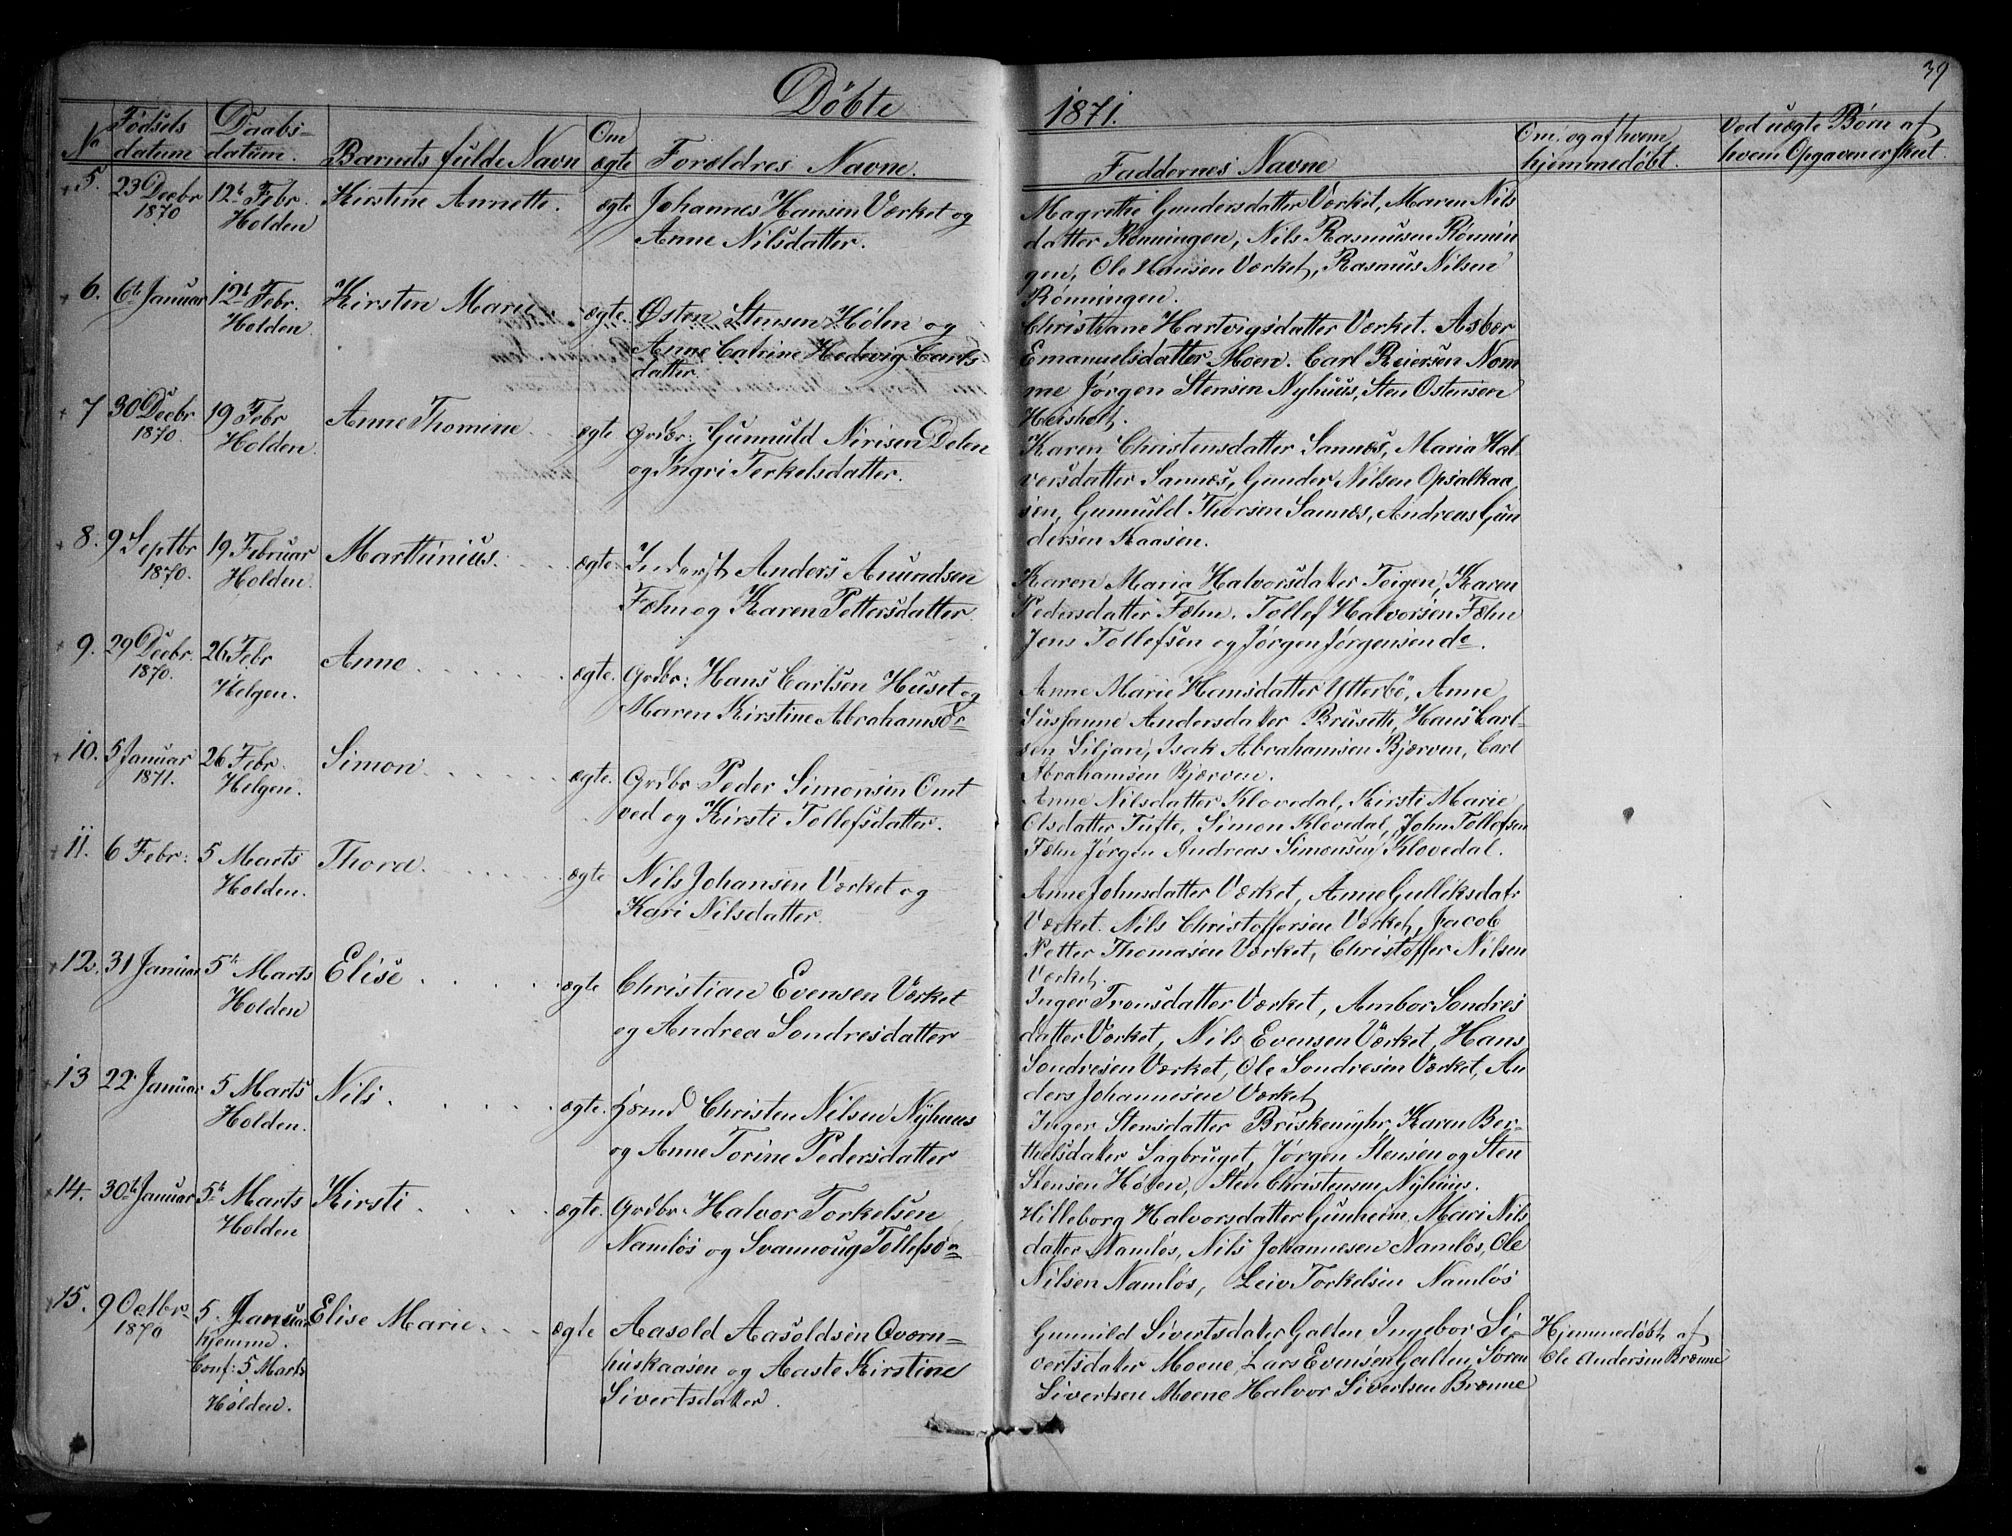 Døbte
1871.
39
No
Fødsels
datum
Daabs-
datum.
Barnets fulde Navn
Om
ægte
Forældres Navne.
Faddernes Navne
Om og af hvem
hjemmedøbt.
Ved uægte Børn af
hvem Opgaven er skeet.
5.
23 Decbr
1870
12te Febr.
Holden
Kirstine Annette.
ægte
Johannes Hansen Værket og
Anne Nilsdatter.
Magrethe Gundersdatter Værket, Maren Nils
datter Rønningen, Nils Rasmusen Rønnin
gen, Ole Hansen Værket, Rasmus Nilsen
Rønningen.
6.
6te Januar
12te Febr.
Holden
Kirsten Marie
ægte.
Østen Stensen Hølen og
Anne Catrine Hedevig Carls
datter.
Christiane Hartvigsdatter Værket. Asbær
Emanuelsdatter Moen. Carl Reiersen Nom
me Jørgen Stensen Nyhuus, Sten Ostensen
Heisholt.
7
30 Decbr
1870.
19 Febr
Holden.
Anne Thomine
ægte
Grdbr: Gunnuld Nirisen Delen
og Ingri Terkelsdatter.
Karen Christensdatter Sannæs, Maria Hal
versdatter Sannæs, Gunder Nilsen Opsalkaa
sen, Gunnuld Thorsen Sannæs, Andreas Gun
dersen Kaasen.
8.
9 Septbr
1870.
19 Februar
Holden.
Marthinius.
ægte.
Inderst Anders Amundsen
Fæhn og Karen Pettersdatter
Karen Maria Halvorsdatter Teigen, Karen
Pedersdatter Fæhn, Tollef Halvorsen Fæhn
Jens Tollefsen og Jørgen Jørgensen do.
9.
29 Decbr.
1870.
26 Febr
Helgen.
Anne
ægte.
Grdbr: Hans Carlsen Huset og
Maren Kirstine Abrahamsdr
Anne Marie Hansdatter Ytterbø, Anne
Susfanne Andersdatter Bruseth, Hans Carl-
sen Siljan, Isak Abrahamsen Bjærven, Carl
Abrahamsen Bjærven.
10.
5 Januar
1871.
26 Febr.
Helgen.
Simon.
ægte.
Grdbr Peder Simonsen Omt
ved og Kirsti Tollefsdatter.
Anne Nilsdatter Klovedal, Kirsti Marie
Olsdatter Tufte, Simon Klovedal, John Tollefsen
Fæhn Jørgen Andreas Simonsen Klovedal.
11.
6 Febr:
5 Marts
Holden.
Thora.
ægte
Nils Johansen Værket og
Kari Nilsdatter.
Anne Johnsdatter Værket, Anne Gulliksdatr
Værket. Nils Christoffersen Værket, Jacob
Petter Thomasen Værket, Christoffer Nilsen
Værket.
12.
31 Januar
5te Marts
Holden
Elise
ægte
Christian Evensen Værket
og Andrea Sondresdatter
Inger Tronsdatter Værket, Ambor Sondres
datter Værket, Nils Evensen Værket, Hans
Sondresen Værket, Ole Sondresen Værket, An
ders Johannesen Værket
13
22 Januar
5 Marts
Holden.
Nils.
ægte.
Christen Nilsen Nyhuus
og Anne Torine Pedersdatter
Inger Stensdatter Briskemyhr, Karen Ber-
thelsdatter Sagbruget, Jørgen Stensen og Sten
Stensen Hølen, Sten Christensen Nyhuus.
14.
30te Januar
5te Marts
Holden
Kirsti
ægte.
Grdbr: Halvor Torkelsen
Namløs og Svannoug Tollefsdr
Hilleborg Halvorsdatter Gunheim. Mari Nils
datter Namløs, Nils Johannesen Namløs, Ole
Nilsen Namløs, Leiv Torkelsen Namløs
15.
9 Octbr
1870
5. Januar
hjemme.
Conf: 5 Marts
Holden.
Elise Marie
ægte
Aasold Aasoldsen Qværn-
huskaasen og Aaste Kirstine
Sivertsdatter.
Gunnild Sivertsdatter Galten, Ingebor Si-
vertsdatter Moene, Lars Evensen Galten, Søren
Sivertsen Moene Halvor Sivertsen Brænne
Hjemmedøbt af
Ole Andersen Brænne